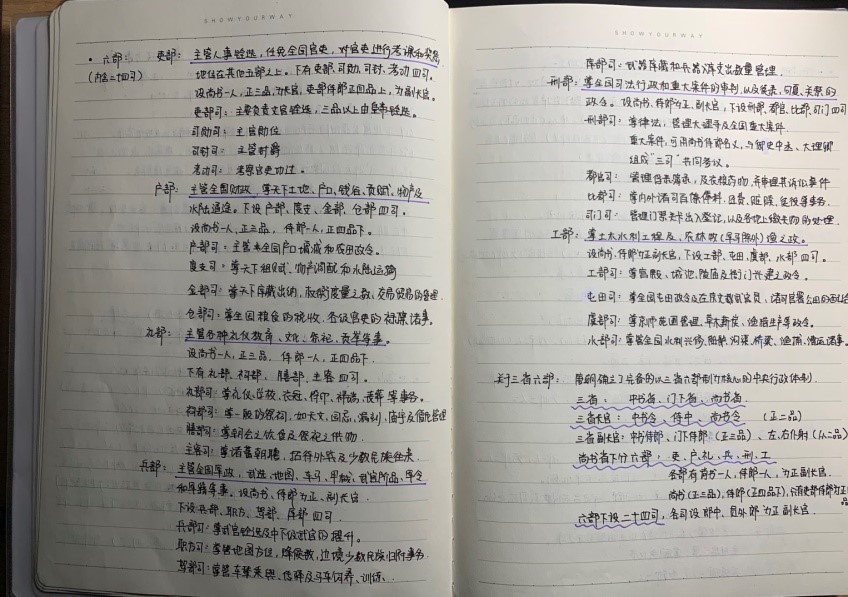 SHOWYOURWAY
• 六部： 吏部：主管人事铨选，任免全国官吏，对官吏进行考课和奖惩
(内含二十四司) 地位在其他五部之上。下有吏部、司勋、司封、考功四司。
设尚书一人，正三品，为长官，吏部侍郎正四品上，为副长官。
吏部司：主要负责文官铨选，三品以上由皇帝铨选。
司勋司：主官勋位
司封司：主管封爵
考功司：考察官吏功过。
户部：主管全国财政，掌天下土地、户口、钱谷、贡赋、物产及
水陆通途。下设户部、度支、金部、仓部四司。
设尚书一人，正三品，侍郎一人，正四品下。
户部司：主管全国户口增减和农田政令。
度支司：掌天下租赋、物产调配和水陆运输
金部司：掌天下库藏出纳，权衡度量之数，交易贸易的管理
仓部司：掌全国粮食的税收，各级官吏的禄廪诸事。
礼部：主管各种礼仪教育、文化、祭祀、贡举等事。
设尚书一人，正三品，侍郎一人，正四品下。
下有礼部、祠部、膳部、主客四司。
礼部司：掌礼仪、学校、衣冠、符印、祥瑞、丧葬等事务。
祠部司：掌一般的祭祀，如天文、国忌、漏刻、庙宇及僧尼管理
膳部司：掌朝会之饮食及祭祀之供物。
主客司：掌诸蕃朝聘，招待外族及少数民族往来。
兵部：主管全国军政，武选、地图、车马、甲械、武官阶品、军令
和军籍等事。设尚书、侍郎为正、副长官。
下设兵部、职方、驾部、库部四司。
兵部司：掌武官铨选及中下级武官的擢升。
职方司：掌管地图方位，烽候数，边境少数民族归附事务
驾部司：掌管车辇乘舆、传驿及马车饲养、训练、
SHOWYOURWAY
库部司：武器库藏和兵器库支出数量管理。
刑部：掌全国司法行政和重大案件的审判，以及徒隶，句覆、关禁的
政令。设尚书、侍郎为正、副长官，下设刑部、都官、比部、司门四司
刑部司：掌律法，管理大理寺及全国重大案件
重大案件，司用尚书侍郎名义，与御史中丞、大理卿
组成“三司”共同参议。
都官司：管理官奴簿隶，及衣粮药物，并审理其诉讼案件
比部司：掌内外诸司百僚俸料，公费、赃赎、徒役等事务。
司门司：管理门禁关卡出入登记，以及各地上缴失物的处理
工部：掌土木水利工程及，农林牧(军马除外)渔之政。
设尚书、侍郎为正副长官，下设工部、屯田、虞部、水部四司。
工部司：掌宫殿、城池、陵庙及衙门兴建之政令。
屯田司：掌全国屯田政令及在京文武官员，诸司官署公田的
虞部司：掌京师苑囿管理，草木薪炭、渔猎生产等政令。
水部司：掌管全国水利兴修，陂部，沟渠，桥梁、渔捕，漕运诸事。
关于三省六部：唐朝确立了完备的以三省六部制为核心的中央行政体制。
三省：中书省、门下省、尚书省
三省长官：中书令，侍中，尚书令 (正二品)
三省副长官：中书侍郎、门下侍郎(正三品)、左、右仆射(从二品)
尚书省下分六部：吏、户、礼、兵、刑、工
各部有尚书一人，侍郎一人，为正副长官
尚书(正三品)，侍郎(正四品下)，只有吏部侍郎为正四品
六部下设二十四司，各司设郎中，员外郎为正副长官